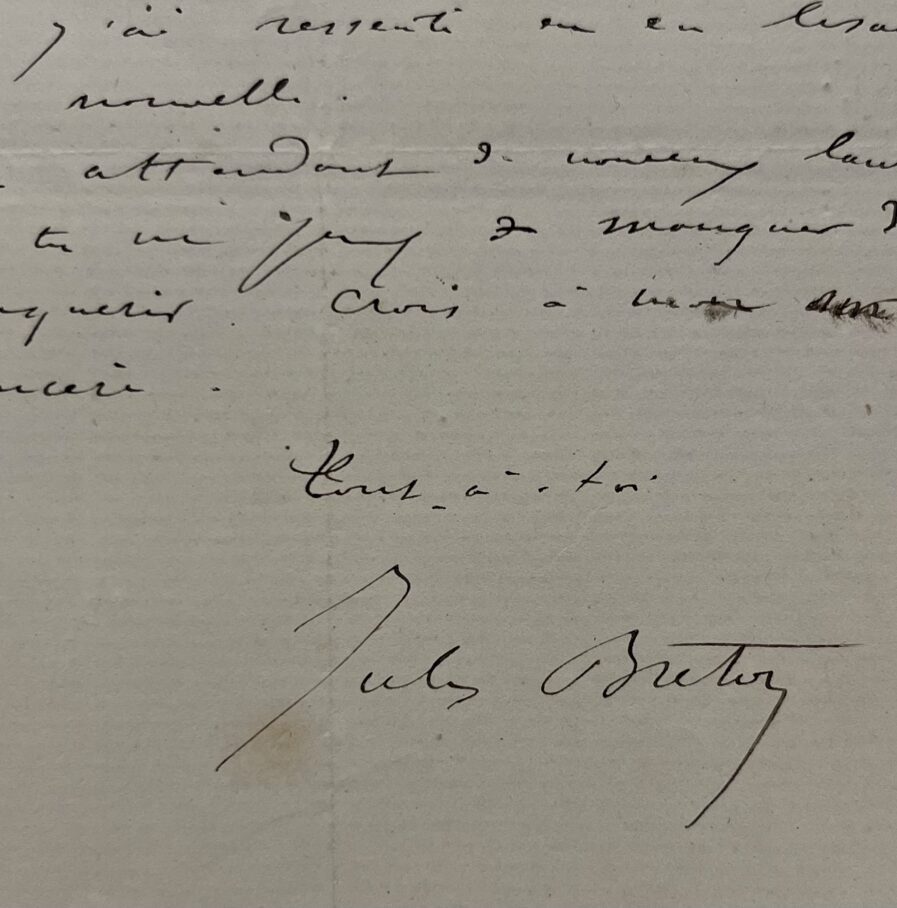 j'ai ressenti en en lisa
nouvelle.
attendant de nouveaux lau
tu ne peux de manquer d
quérir. Crois à mon
ncère.
Tout à toi
Jules Breton